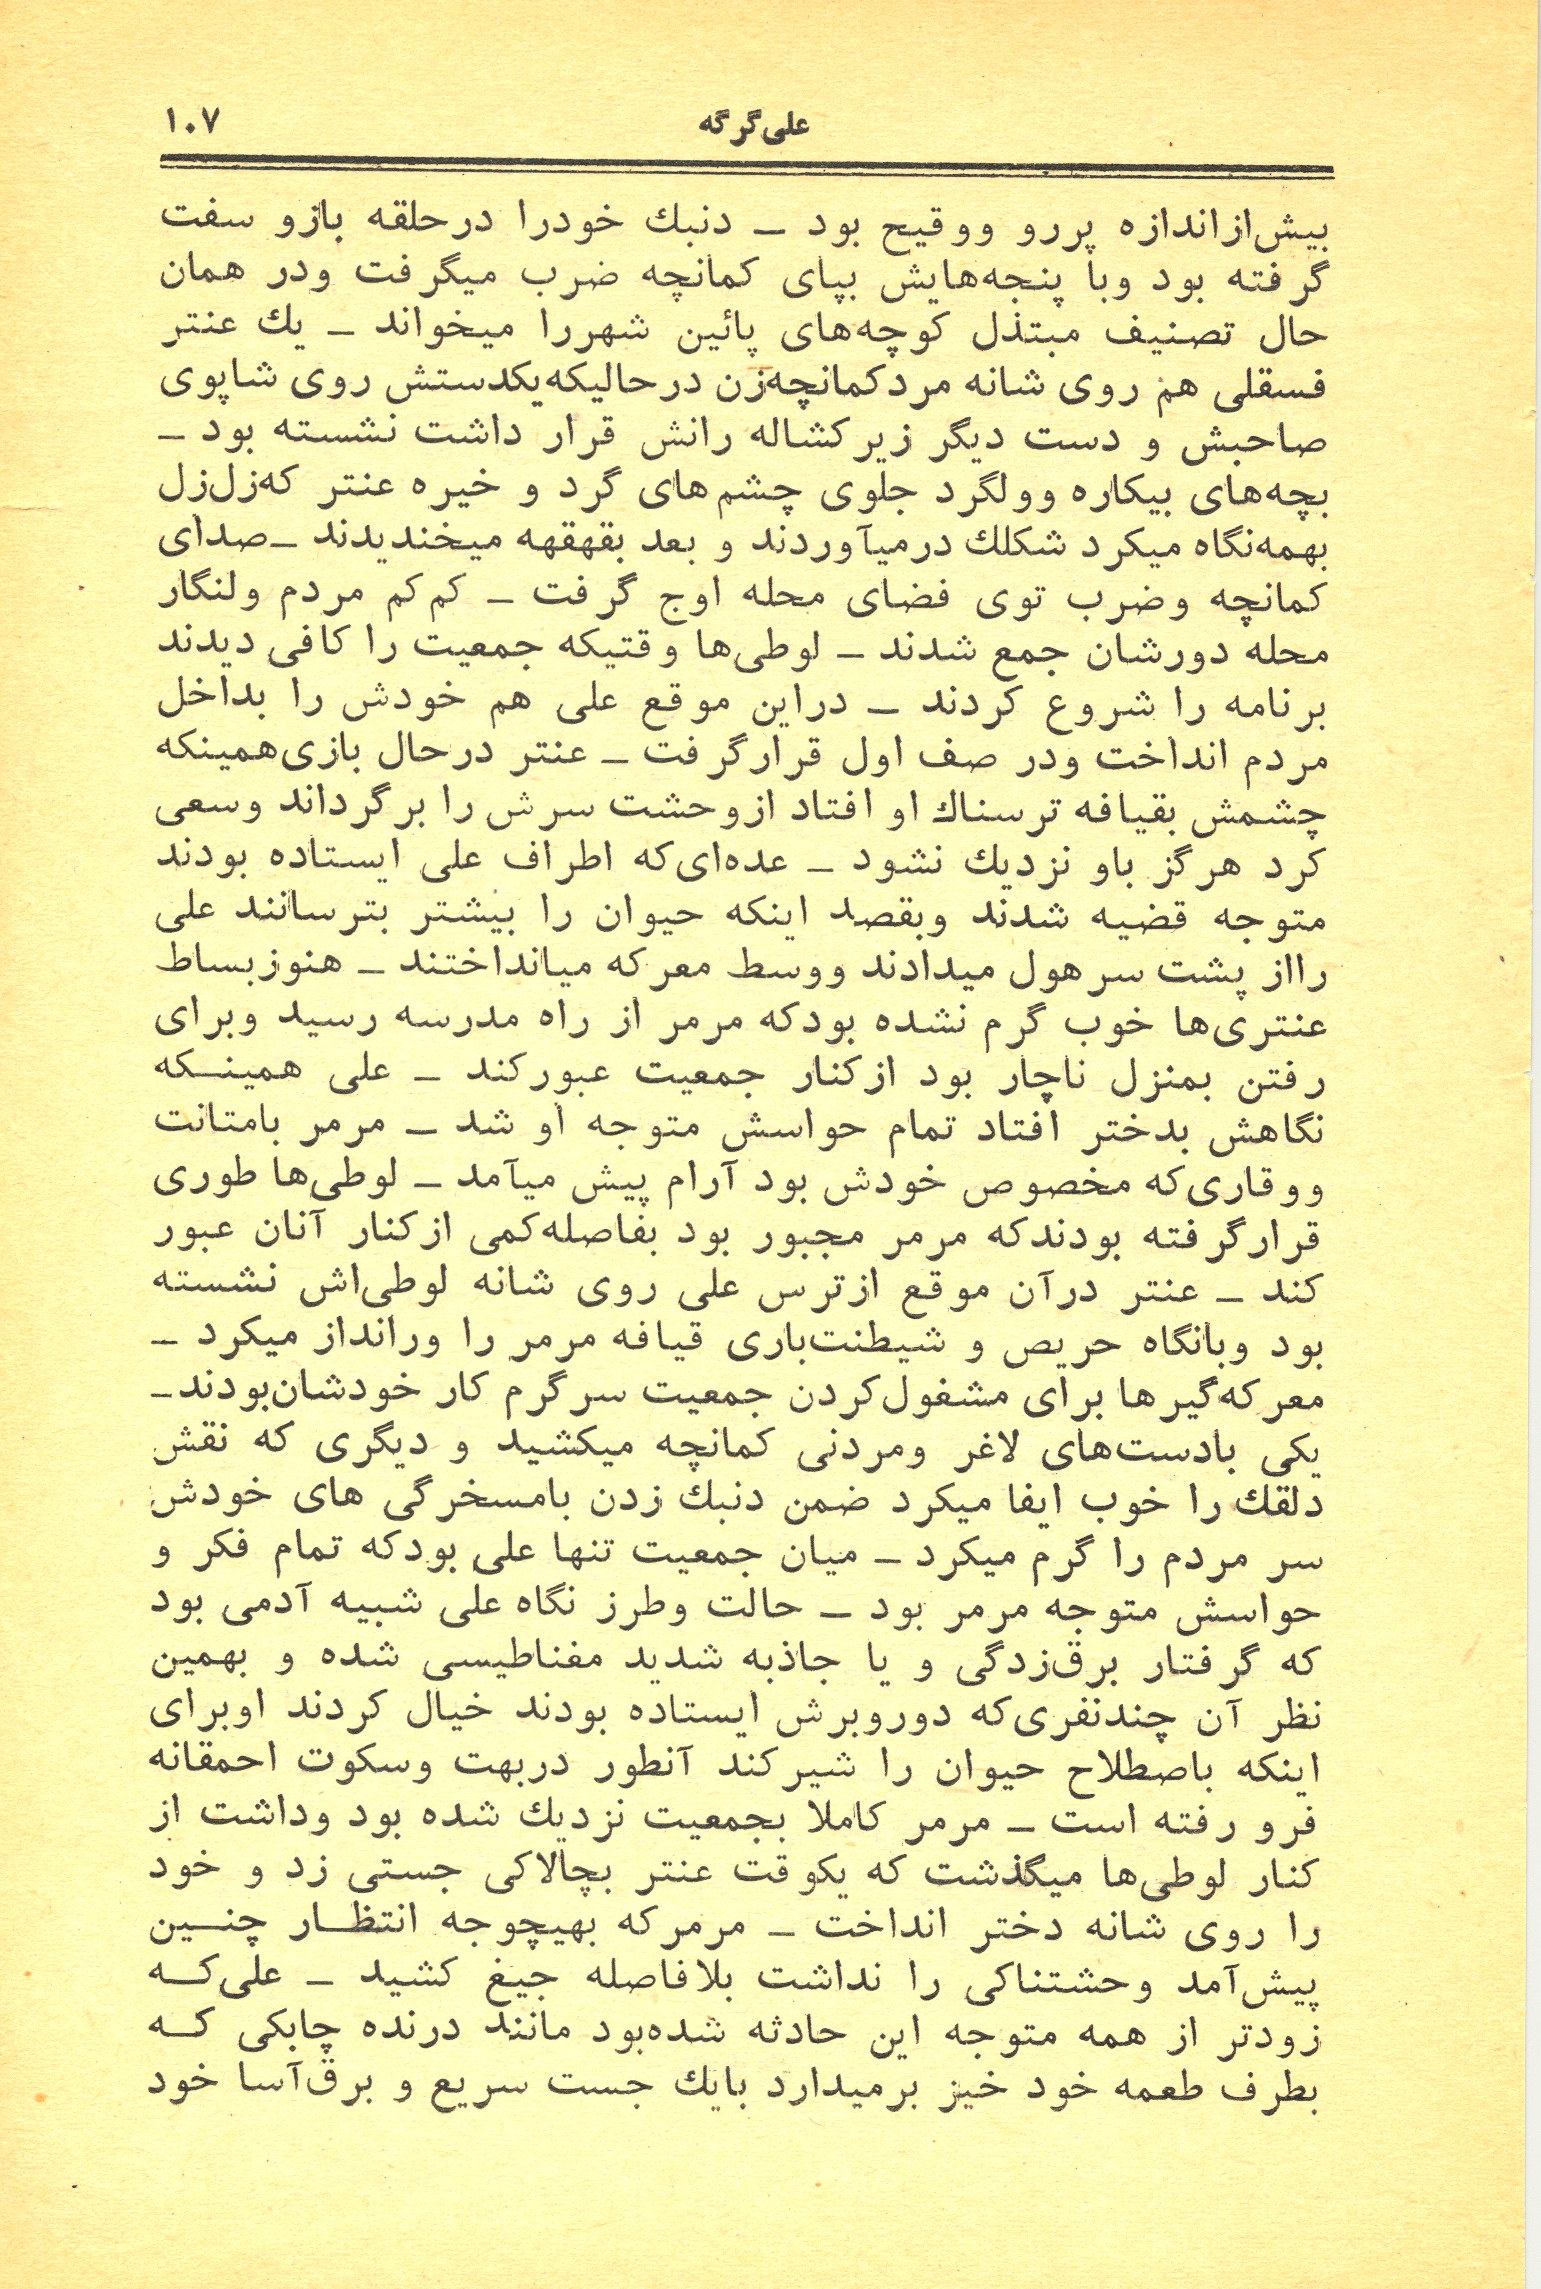 علی‌گرگه
۱۰۷
بیش‌ازاندازه پررو ووقیح بود ـ دنبك خودرا درحلقه بازو سفت
گرفته بود وبا پنجه‌هایش بپای کمانچه ضرب میگرفت ودر همان
حال تصنیف مبتذل کوچه‌های پائین شهررا میخواند ـ یك عنتر
فسقلی هم روی شانه مردکمانچه‌زن درحالیکه‌یکدستش روی شاپوی
صاحبش و دست دیگر زیرکشاله رانش قرار داشت نشسته بود ـ
بچه‌های بیکاره وولگرد جلوی چشم‌های گرد و خیره عنتر که‌زل‌زل
بهمه‌نگاه میکرد شکلك درمیآوردند و بعد بقهقهه میخندیدند ـ صدای
کمانچه وضرب توی فضای محله اوج گرفت ـ کم‌کم مردم ولنگار
محله دورشان جمع شدند ـ لوطی‌ها وقتیکه جمعیت را کافی دیدند
برنامه را شروع کردند ـ دراین موقع علی هم خودش را بداخل
مردم انداخت ودر صف اول قرارگرفت ـ عنتر درحال بازی‌همینکه
چشمش بقیافه ترسناك او افتاد ازوحشت سرش را برگرداند وسعی
کرد هرگز باو نزدیك نشود ـ عده‌ای‌که اطراف علی ایستاده بودند
متوجه قضیه شدند وبقصد اینکه حیوان را بیشتر بترسانند علی
رااز پشت سر هول میدادند ووسط معرکه میانداختند ـ هنوزبساط
عنتری‌ها خوب گرم نشده بودکه مرمر از راه مدرسه رسید وبرای
رفتن بمنزل ناچار بود ازکنار جمعیت عبورکند ـ علی همینـکه
نگاهش بدختر افتاد تمام حواسش متوجه او شد ـ مرمر بامتانت
ووقاری‌که مخصوص خودش بود آرام پیش میآمد ـ لوطی‌ها طوری
قرارگرفته بودندکه مرمر مجبور بود بفاصله‌کمی ازکنار آنان عبور
کند ـ عنتر درآن موقع ازترس علی روی شانه لوطی‌اش نشسته
بود وبانگاه حریص و شیطنت‌باری قیافه مرمر را ورانداز میکرد ـ
معرکه‌گیرها برای مشغول‌کردن جمعیت سرگرم کار خودشان‌بودند ـ
یکی بادست‌های لاغر ومردنی کمانچه میکشید و دیگری که نقش
دلقك را خوب ایفا میکرد ضمن دنبك زدن بامسخرگی های خودش
سر مردم را گرم میکرد ـ میان جمعیت تنها علی بودکه تمام فکر و
حواسش متوجه مرمر بود ـ حالت وطرز نگاه علی شبیه آدمی بود
که گرفتار برق‌زدگی و یا جاذبه شدید مغناطیسی شده و بهمین
نظر آن چندنفری‌که دوروبرش ایستاده بودند خیال کردند اوبرای
اینکه باصطلاح حیوان را شیرکند آنطور دربهت وسکوت احمقانه
فرو رفته است ـ مرمر کاملا بجمعیت نزدیك شده بود وداشت از
کنار لوطی‌ها میگذشت که یکوقت عنتر بچالاکی جستی زد و خود
را روی شانه دختر انداخت ـ مرمرکه بهیچوجه انتظـار چنـین
پیش‌آمد وحشتناکی را نداشت بلافاصله جیغ کشید ـ علی‌کـه
زودتر از همه متوجه این حادثه شده‌بود مانند درنده چابکی کـه
بطرف طعمه خود خیز برمیدارد بایك جست سریع و برق‌آسا خود